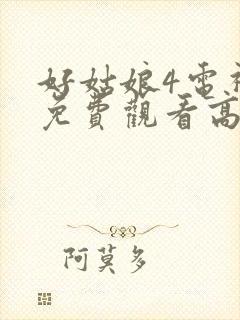 好姑娘4電視
免費觀看高
阿莫多